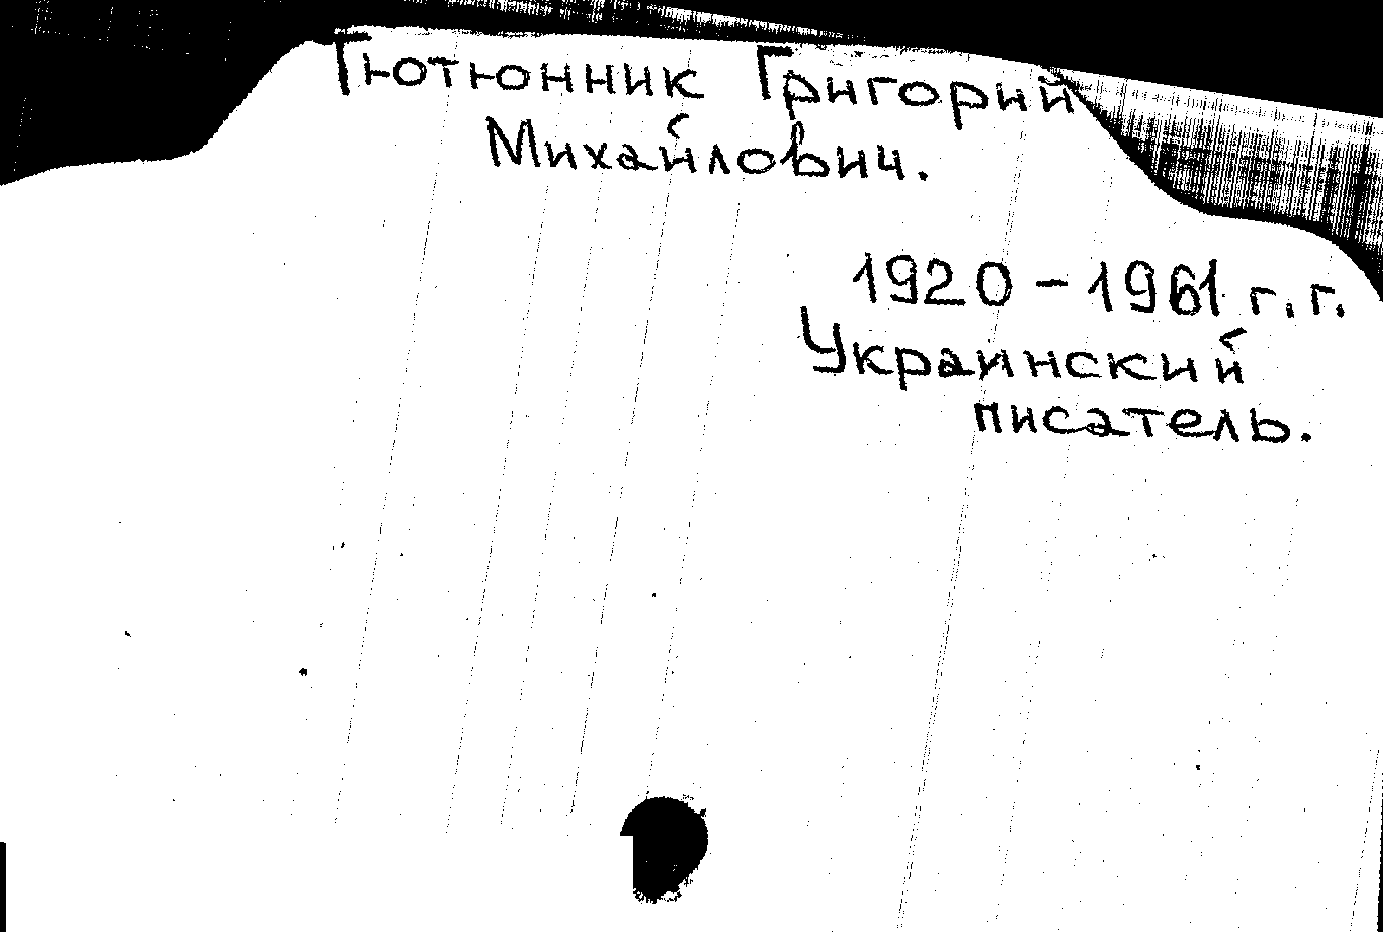 Тютюнник Григорий
Михайлович.
1920 - 1961 г.г.
Украинский
писатель.